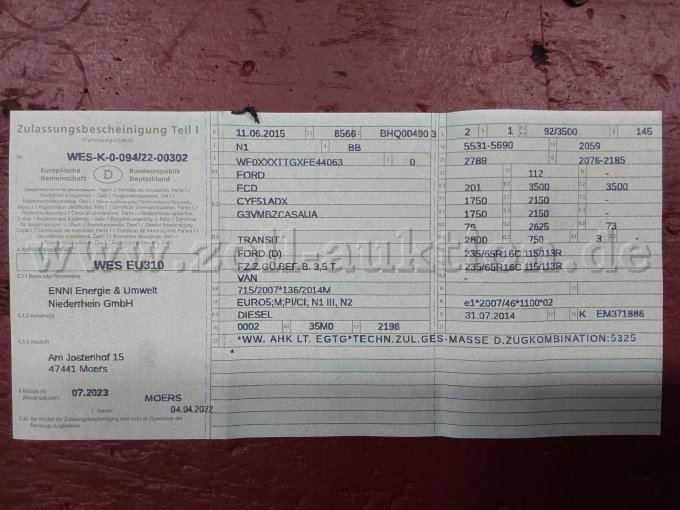 Zulassungsbescheinigung Teil I
(Fahrzeugschein)
Nr. WES-K-0-094/22-00302
Europäische Gemeinschaft
D
Bundesrepublik Deutschland
WES EU310
C.1.1 Name oder Firmenname
ENNI Energie & Umwelt
Niederrhein GmbH
C.1.2 Vorname(n)
C.1.3 Anschrift
Am Jostenhof 15
47441 Moers
07.2023
MOERS
I Datum
04.04.2022
C.4c Der Inhaber der Zulassungsbescheinigung wird nicht als Eigentümer des Fahrzeugs ausgewiesen.
11.06.2015 8566 BHQ00490 3
N1 BB
WF0XXXTTGXFE44063 0
FORD
FCD
CYF51ADX
G3VMBZCASAUA
TRANSIT
FORD (D)
FZ.Z.GÜ.BEF.B. 3,5 T
VAN
715/2007*136/2014M
EURO5;M;PI/CI; N1 III, N2
DIESEL
0002 35M0 2198
2 1 92/3500 145
5531-5690 2059
2789 2076-2185
- 112 -
201 3500 3500
1750 2150 -
1750 2150 -
79 2625 73
2800 750 3 -
235/65R16C 115/113R
235/65R16C 115/113R
-
e1*2007/46*1100*02
31.07.2014 K EM371886
*WW. AHK LT. EGTG*TECHN.ZUL.GES-MASSE D.ZUGKOMBINATION:5325
*
www.zoll-auktion.de